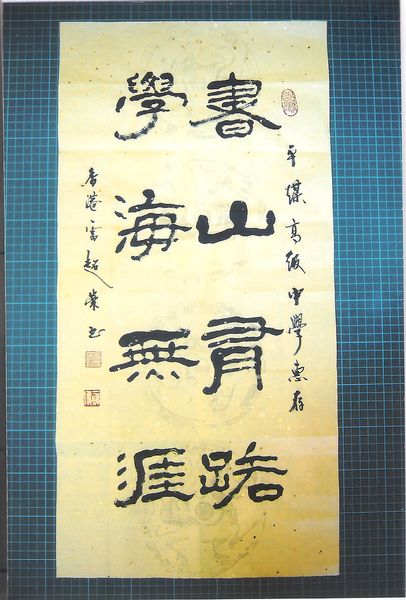 平煤高级中學惠存
書山有路
學海無涯
香港雷超榮书